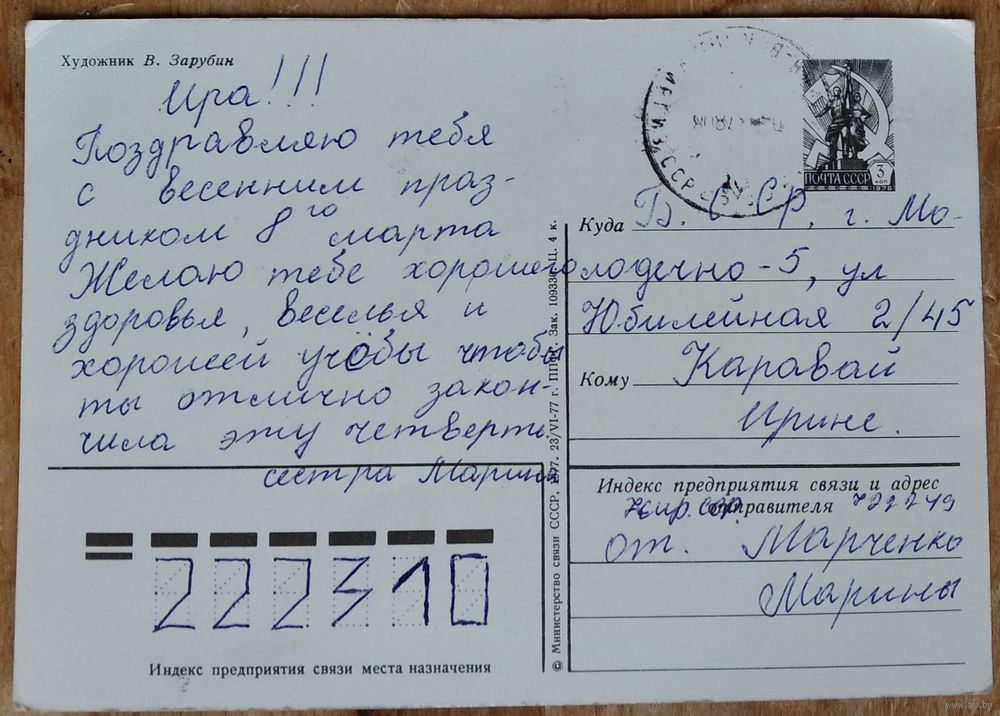 Художник В. Зарубин
Ира!!!
Поздравляю тебя
с весенним праз-
дником 8го марта
Желаю тебе хорошего
здоровья, веселья и
хорошей учёбы чтобы
ты отлично закон-
чила эту четверть.
сестра Марина
ПОЧТА СССР
3
КОП
1976
Куда Б. ССР, г. Мо-
лодечно-5, ул
Юбилейная 2/45
Кому Каравай
Ирине.
Индекс предприятия связи и адрес
отправителя
от. Марченко
Марины
222310
Индекс предприятия связи места назначения
© Министерство связи СССР, 1977. 23/VI-77 г. ППФГ. Зак. 109330. Ц. 4 к.
www.ay.by